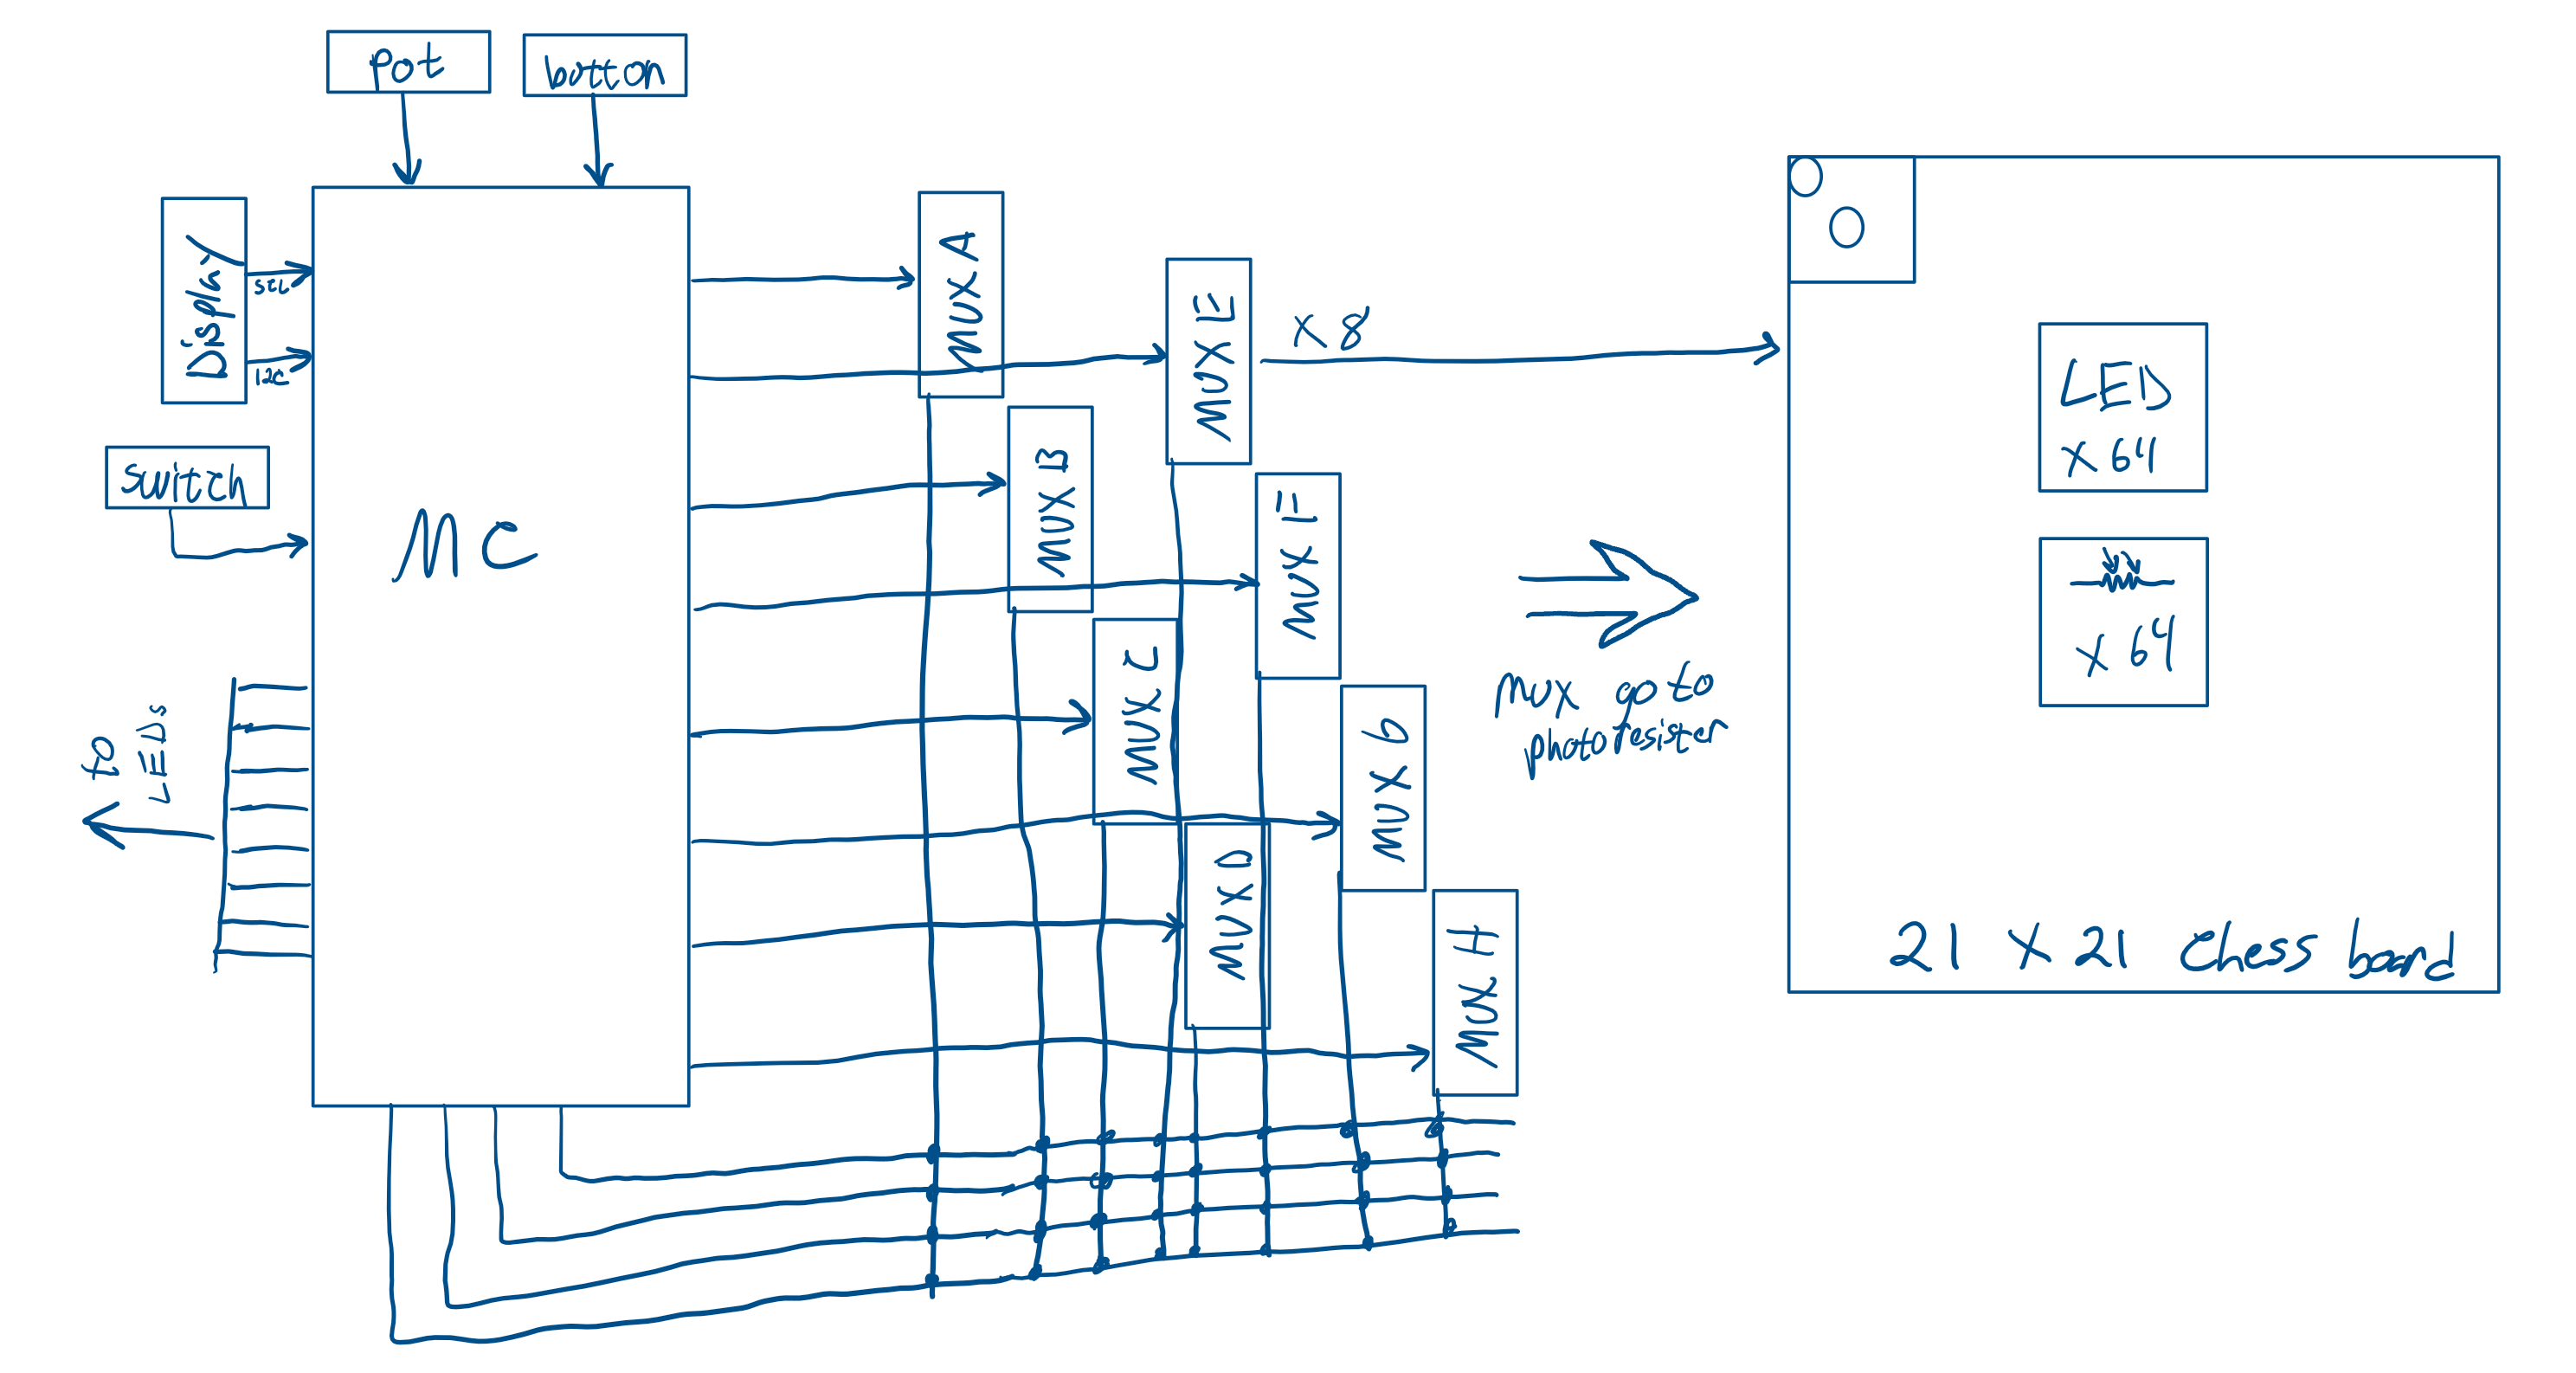 pot
button
Display
SCL
I2C
switch
MC
to
LEDs
MUX A
MUX E
X 8
MUX B
MUX F
MUX C
MUX G
MUX D
MUX H
MUX go to
photo resister
LED
X 64
X 64
21 X 21 Chess board